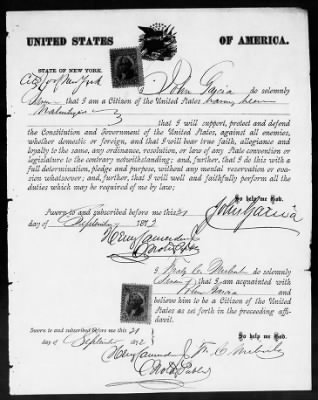 UNITED STATES OF AMERICA.
STATE OF NEW YORK.
City of New York
I John Garcia do solemnly
Swear that I am a Citizen of the United States having been
Naturalized
that I will support, protect and defend
the Constitution and Government of the United States, against all enemies,
whether domestic or foreign, and that I will bear true faith, allegiance and
loyalty to the same, any ordinance, resolution, or law of any State convention or
legislature to the contrary notwithstanding; and, further, that I do this with a
full determination, pledge and purpose, without any mental reservation or
evasion whatsoever; and, further, that I will well and faithfully perform all the
duties which may be required of me by law;
So help me God.
John Garcia
Sworn to and subscribed before me this 21
day of September 1872
Notary Public
I do solemnly
Swear that I am acquainted with
John Garcia and
believe him to be a Citizen of the United
States as set forth in the preceding affi-
davit.
So help me God.
Sworn to and subscribed before me this 21
day of September 1872
Notary Public